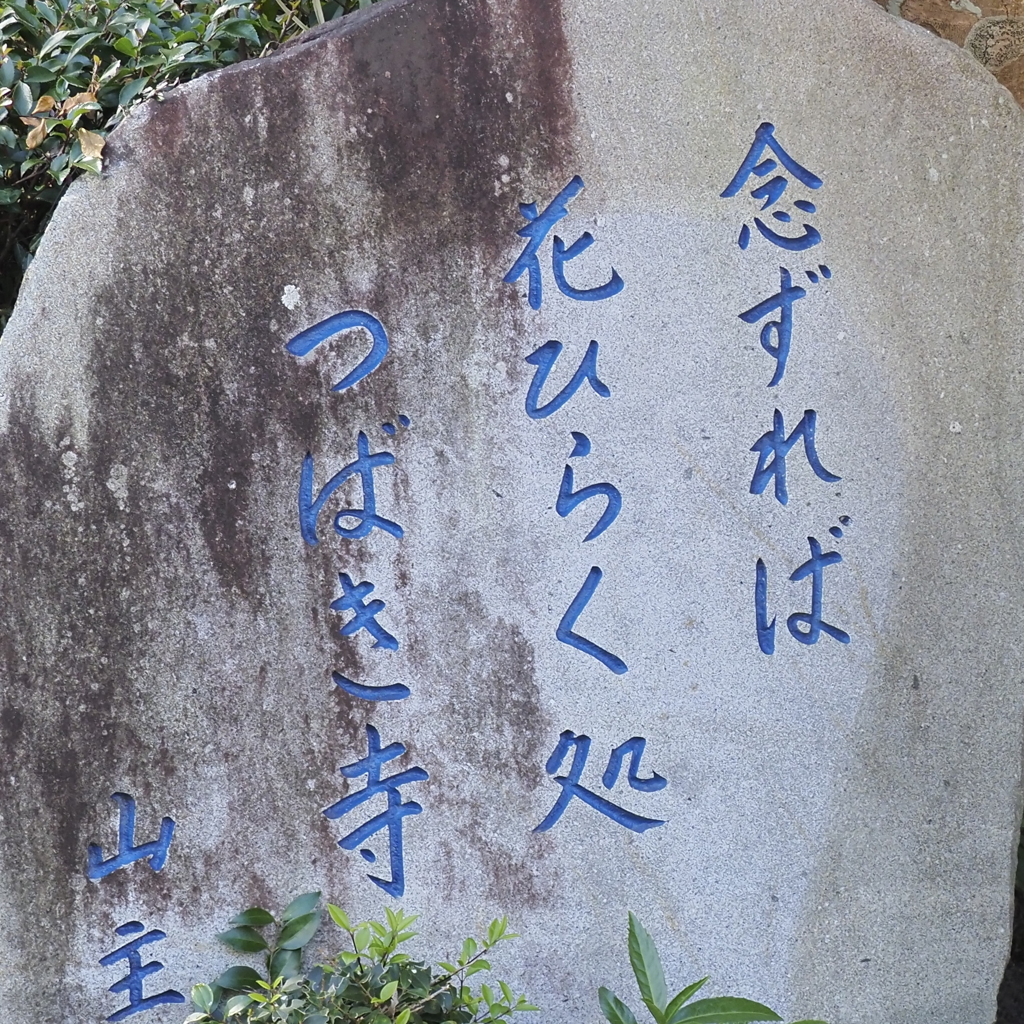 念ずれば
花ひらく処
つばき寺
山主